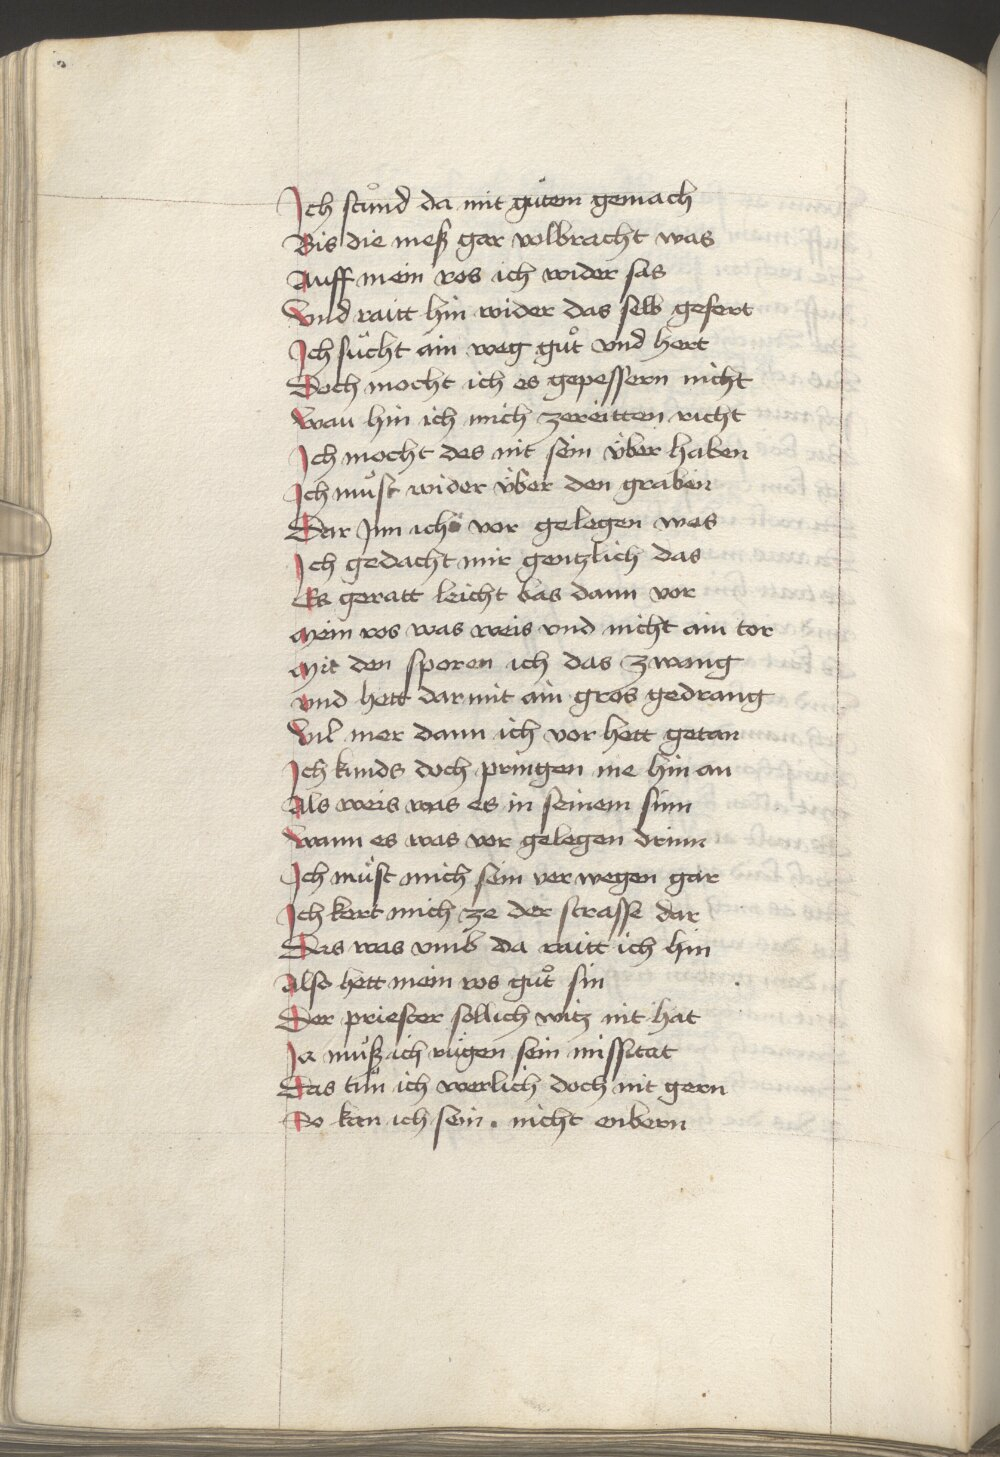 Ich stůnd da mit gůtem gemach
Bis die meß gar volbracht was
Auff mein ros ich wider sas
Vnd raitt hin wider das selb gefert
Ich sůcht ain weg gůt vnd hert
Doch mocht ich es gepessern nicht
Wau hin ich mich zereitten richt
Ich mocht des nit sein über haben
Ich můst wider über den graben
Dar Jnn ich vor gelegen was
Ich gedacht mir gentzlich das
Es geratt leicht bas dann vor
Mein ros was weis vnd nicht ain tor
Mit den sporen ich das zwang
Vnd hett dar mit ain gros gedrang
Vil mer dann ich vor hett getan
Ich kunds doch pringen nie hin an
Als weis was es in seinem sinn
Wann es was vor gelegen drinn
Ich můst mich sein ver wegen gar
Ich kert mich ze der strasse dar
Das was vmb da raitt ich hin
Also hett mein ros gůt sin
Der priester sollich witz nit hat
Ja můß ich rügen sein missitat
Das tůn ich werlich doch nit gern
So kan ich sein . nicht enbern